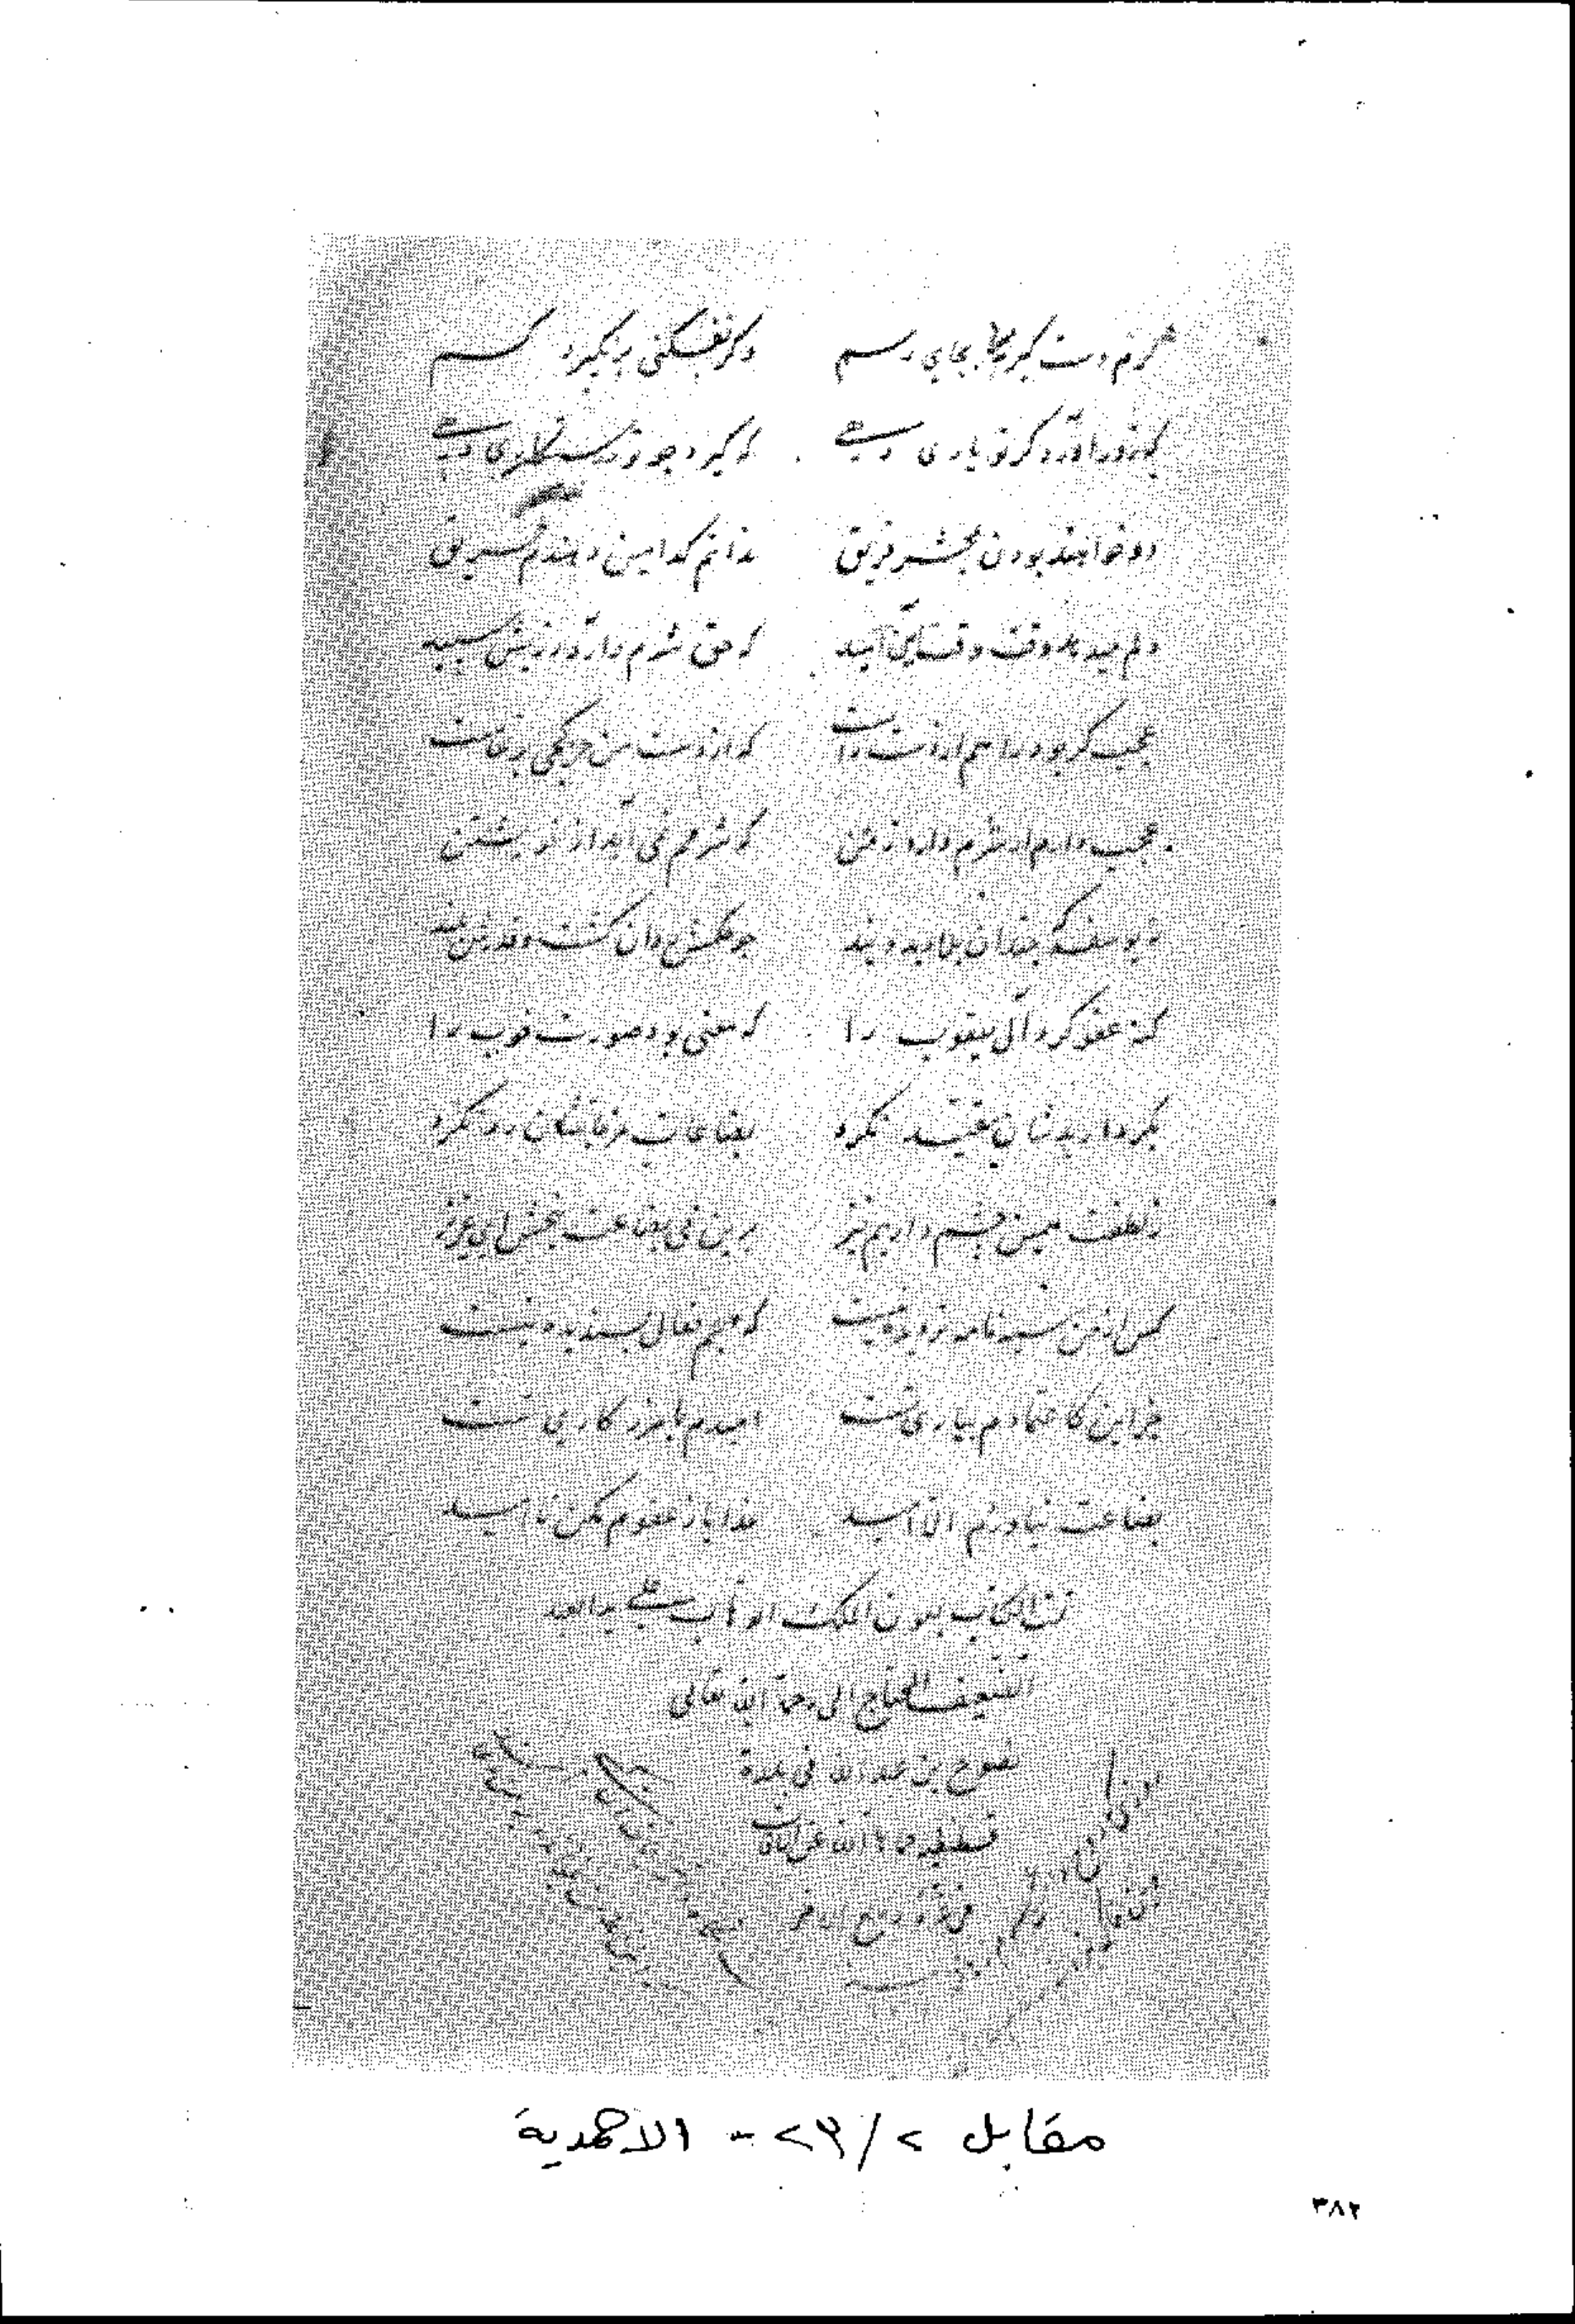 گرم دست گیری بجایی رسم وگر بفکنی بر نگیرد کسم
که زور آورد گر تو یاری دهی که گیرد چو تو رستگاری دهی
دو خواهند بودن بمحشر فریق ندانم کدامین دهندم طریق
دلم میدهد وقت وقت این امید که حق شرم دارد ز سپید
عجب گر بود راهم از دست راست که از دست من جز کجی برنخاست
عجب دارم ار شرم دارد ز من که شرمم نمی آید از خویشتن
نه یوسف که چندان بلا دید و بند چو حکمش روان گشت و قدرش بلند
گنه عفو کرد آل یعقوب را که معنی بود صورت خوب را
بکردار بدشان مقید نکرد بضاعات مزجاتشان رد نکرد
ز لطفت همین چشم داریم نیز برین بی بضاعت ببخش ای عزیز
کس از من سیه نامه تر دیده نیست که هیچم فعال پسندیده نیست
جز این کاعتمادم بیاری تست امیدم بآمرزگاری تست
بضاعت نیاوردم الا امید خدایا ز عفوم مکن ناامید
الکتاب بعون الملک الوهاب علی ید العبد
الضعیف المحتاج الی رحمة الله تعالی
بن عبد الله فی بلدة
الله عن الآفات
ربیع الآخر
مقابل ٢/٢٩ - الاحمدية
٣٨٢